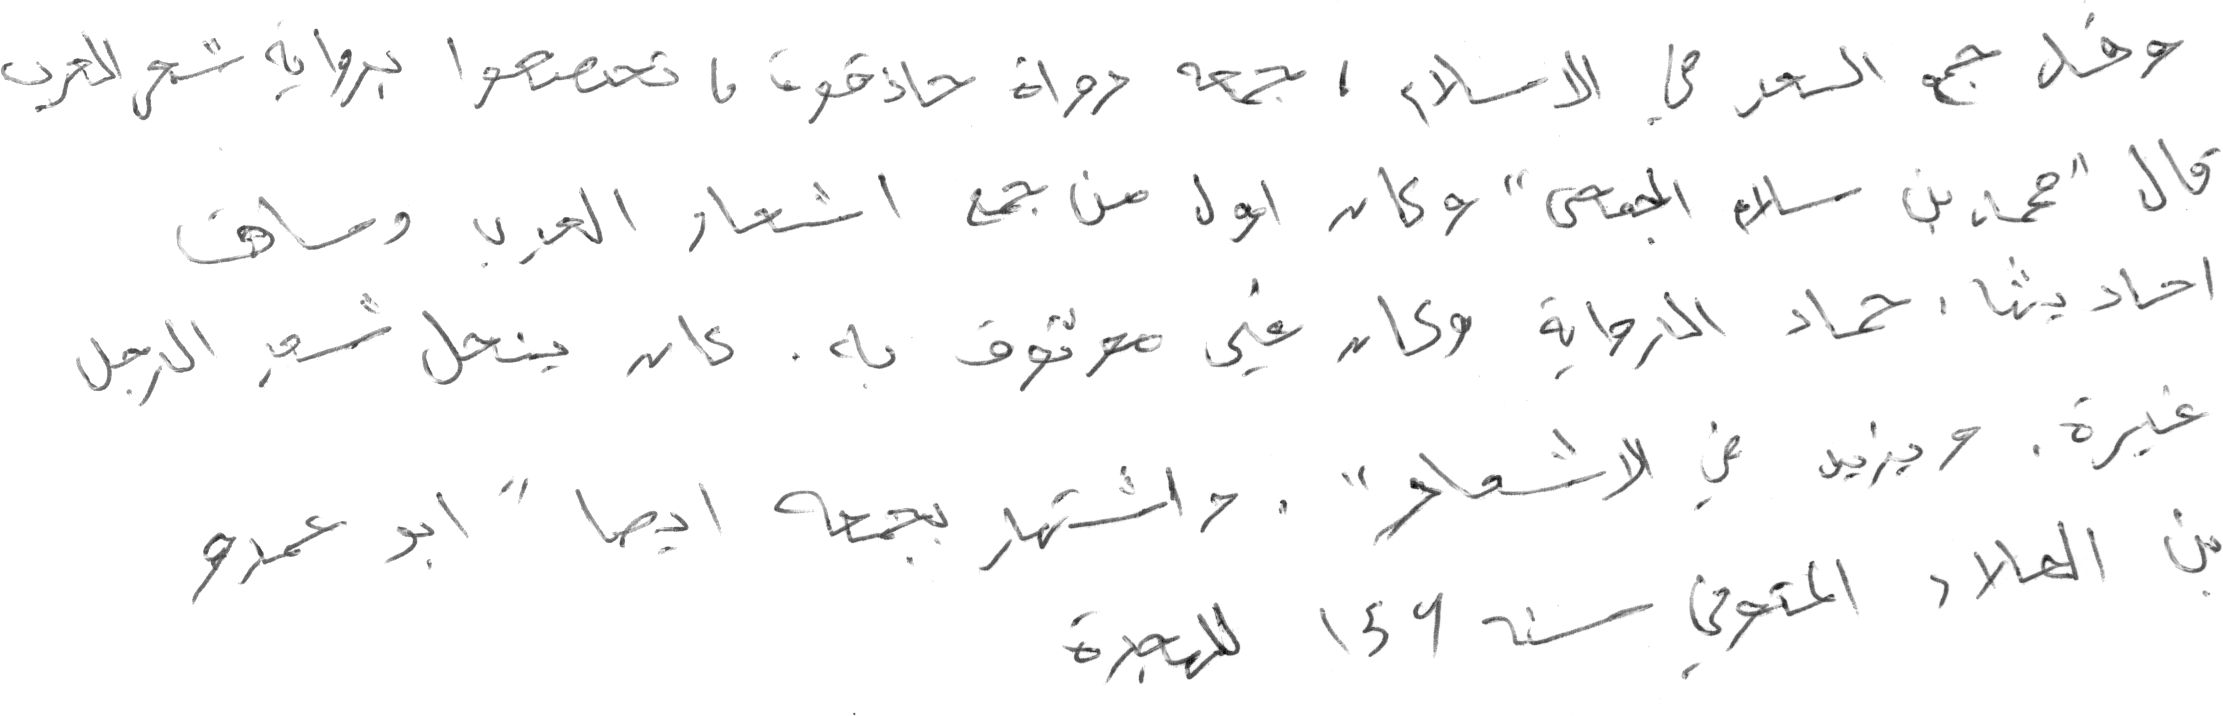 وقد جمع الشعر في الاسلام ، جمعه رواة حاذقون ، تخصصوا برواية شعر العرب
قال "محمد بن سلام الجمحي" وكان اول من جمع اشعار العرب وساق
احاديثها ، حماد الرواية وكان غير موثوق به . كان ينحل شعر الرجل
غيرة . ويزيد في الاشعار" . واشتهر بجمعه ايضا " ابو عمرو
بن العلاء المتوفي سنه 154 للهجرة